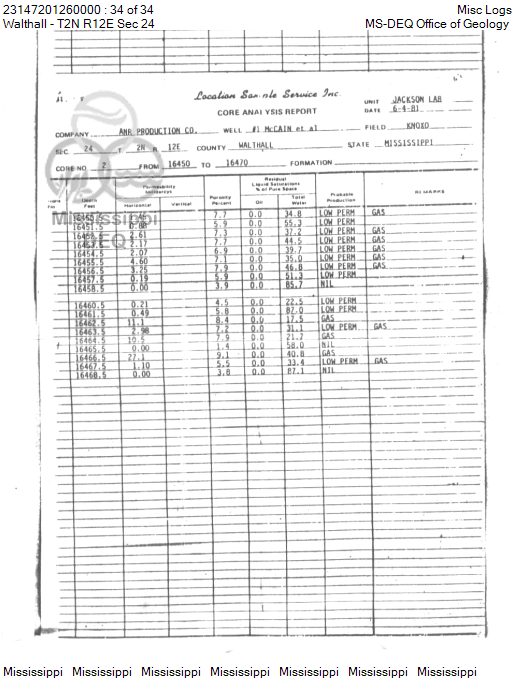 23147201260000 : 34 of 34 Misc Logs
Walthall - T2N R12E Sec 24 MS-DEQ Office of Geology
Location Sample Service Inc.
UNIT JACKSON LAB
CORE ANALYSIS REPORT DATE 6-4-81
COMPANY ANR PRODUCTION CO. WELL #1 McCAIN et al FIELD KNOXO
SEC 24 T 2N R 12E COUNTY WALTHALL STATE MISSISSIPPI
CORE NO 2 FROM 16450 TO 16470 FORMATION
Depth Feet Permeability Horizontal Vertical Porosity Percent Residual Liquid Saturations % of Pore Space Oil Total Water Probable Production REMARKS
Mississippi
DEQ
7.7 0.0 34.8 LOW PERM GAS
16451.5 0.88 5.9 0.0 55.3 LOW PERM
2.61 7.3 0.0 37.2 LOW PERM GAS
16453.5 2.17 7.7 0.0 44.5 LOW PERM GAS
16454.5 2.07 6.9 0.0 39.7 LOW PERM GAS
16455.5 4.60 7.1 0.0 35.0 LOW PERM GAS
16456.5 3.25 7.9 0.0 46.8 LOW PERM GAS
16457.5 0.19 5.9 0.0 51.3 LOW PERM
16458.5 0.00 3.9 0.0 85.7 NIL
16460.5 0.21 4.5 0.0 22.5 LOW PERM
16461.5 0.49 5.8 0.0 87.0 LOW PERM
16462.5 11.1 8.4 0.0 17.5 GAS
16463.5 2.98 7.2 0.0 31.1 LOW PERM GAS
16464.5 10.5 7.9 0.0 21.7 GAS
16465.5 0.00 1.4 0.0 58.0 NIL
16466.5 27.1 9.1 0.0 40.8 GAS
16467.5 1.10 5.5 0.0 33.4 LOW PERM GAS
16468.5 0.00 3.8 0.0 87.1 NIL
Mississippi Mississippi Mississippi Mississippi Mississippi Mississippi Mississippi